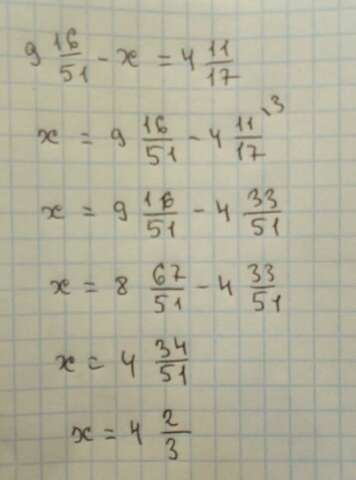 9 16/51 - x = 4 11/17
x = 9 16/51 - 4 11/17 \3
x = 9 16/51 - 4 33/51
x = 8 67/51 - 4 33/51
x = 4 34/51
x = 4 2/3